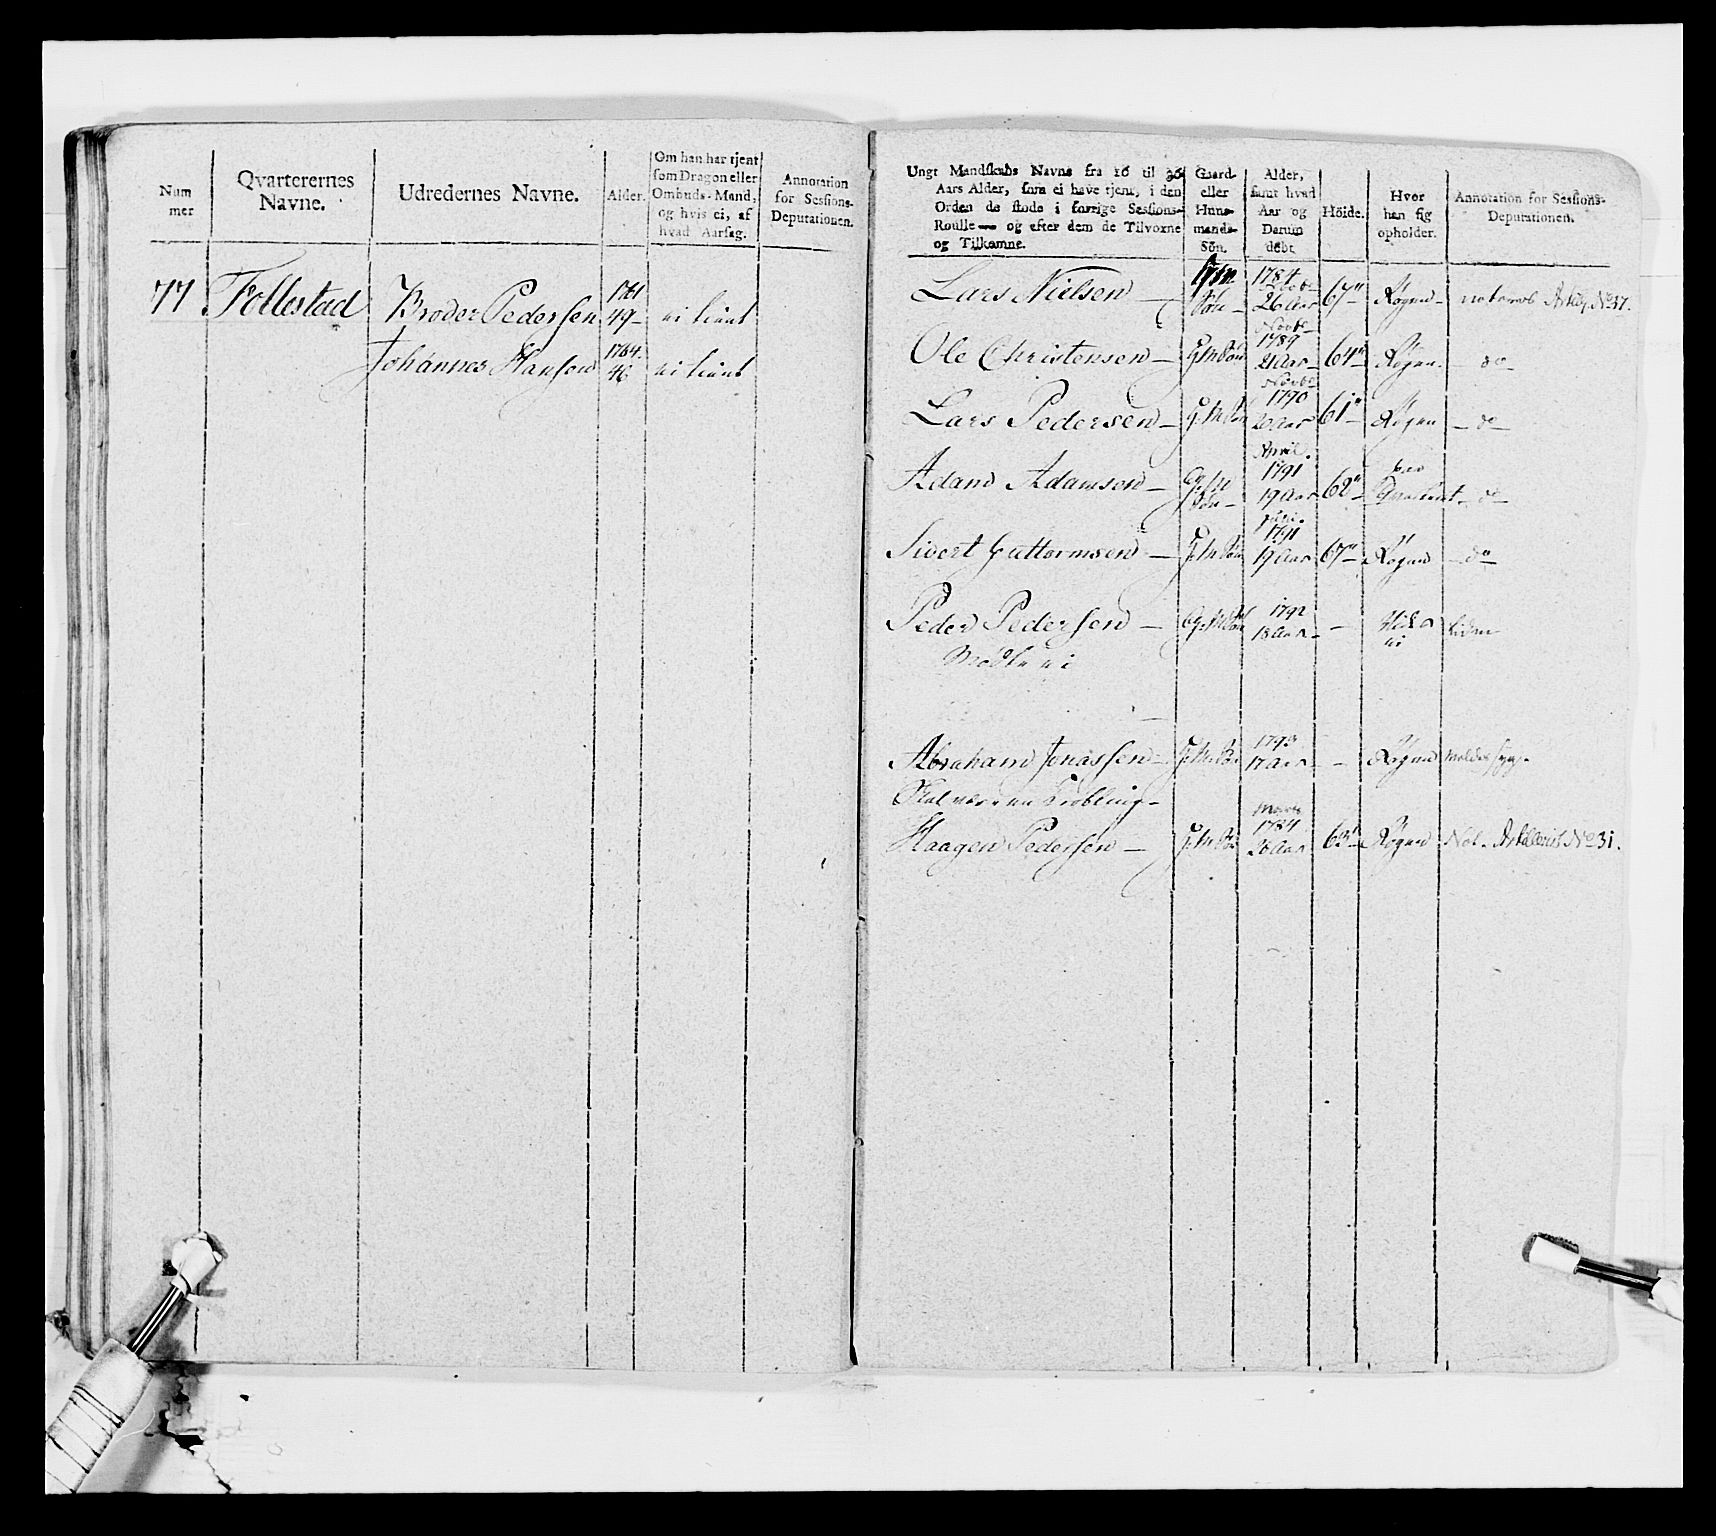 Num
mer
Qvarterernes
Navne.
Udredernes Navne.
Alder.
Om han har tjent
som Dragon eller
Ombuds-Mand,
og hvis ei, af
hvad Aarsag.
Annotation
for Sessions-
Deputationen.
77 Follestad Broder Pedersen 1761 49- ei tient
Johannes Hansen 1764. 46 ei tient
Ungt Mandskabs Navne fra 16 til 36
Aars Alder, som ei have tjent, i den
Orden de stode i forrige Sessions-
Roulle — og efter dem de Tilvoxne
og Tilkomne.
Gaard-
eller
Huus-
mands-
Sön.
Alder,
samt hvad
Aar og
Datum
döbt.
Höide.
Hvor
han sig
opholder.
Annotation for Sessions-
Deputationen.
Lars Nielsen — 1784 26 Aar 67" Røgen - noteres No 37.
Ole Christensen — G:M Søn 1789 21 Aar 64" Røgen - do
Lars Pedersen — G:M Søn 1790 20 Aar 61" Røgen - do
Adam Adamsen — April. 1791 19 Aar 62" - do
Sivert Guttormsen — G:M Søn 1791 19 Aar 67" Røgen - do
Peder Pedersen — 1792 18 Aar -
Mødte ei
Abraham Jonassen — G:M Søn 1793 17 Aar - Røgen
Skal være en Krøbling -
Haagen Pedersen — G:M Søn 26 Aar 63" Røgen Not. No 31.